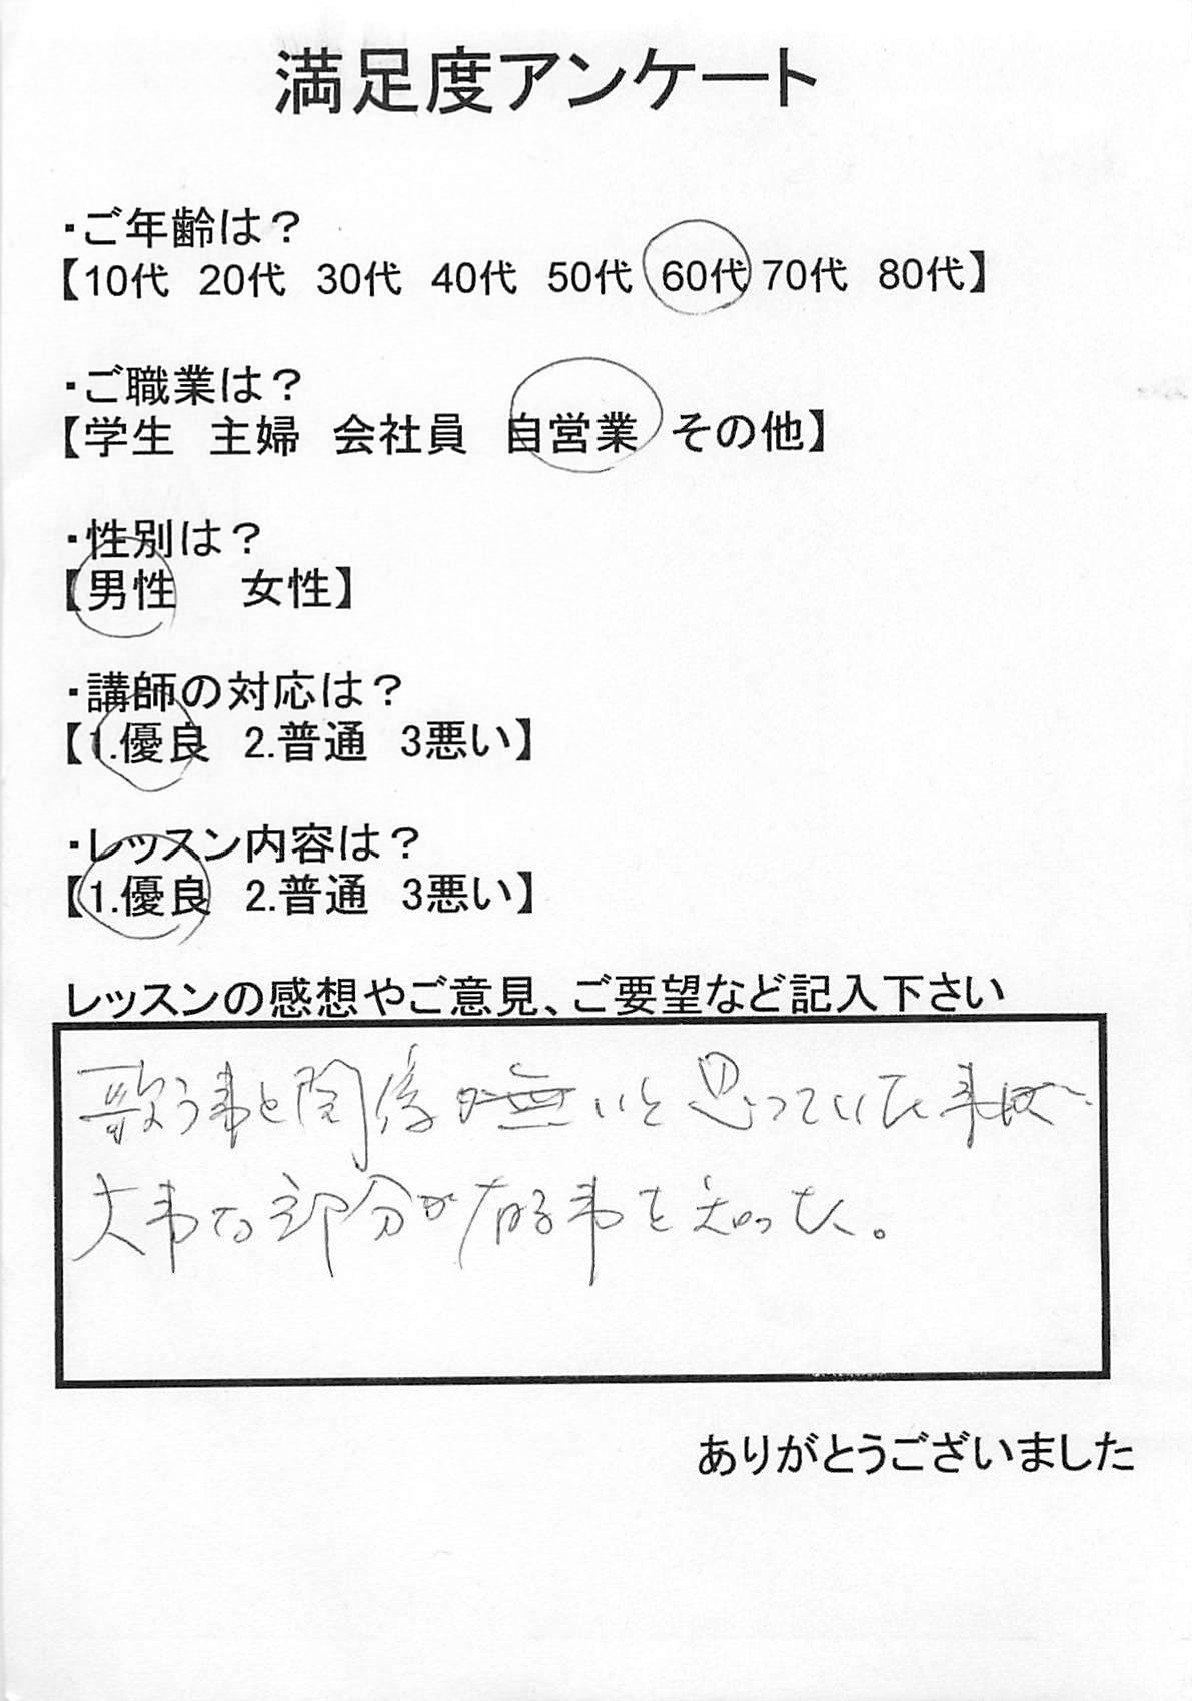 満足度アンケート
・ご年齢は？
【10代 20代 30代 40代 50代 60代 70代 80代】
・ご職業は？
【学生 主婦 会社員 自営業 その他】
・性別は？
【男性 女性】
・講師の対応は？
【1.優良 2.普通 3悪い】
・レッスン内容は？
【1.優良 2.普通 3悪い】
レッスンの感想やご意見、ご要望など記入下さい
歌う事と関係が無いと思っていた事
大事な部分が有る事を知った。
ありがとうございました